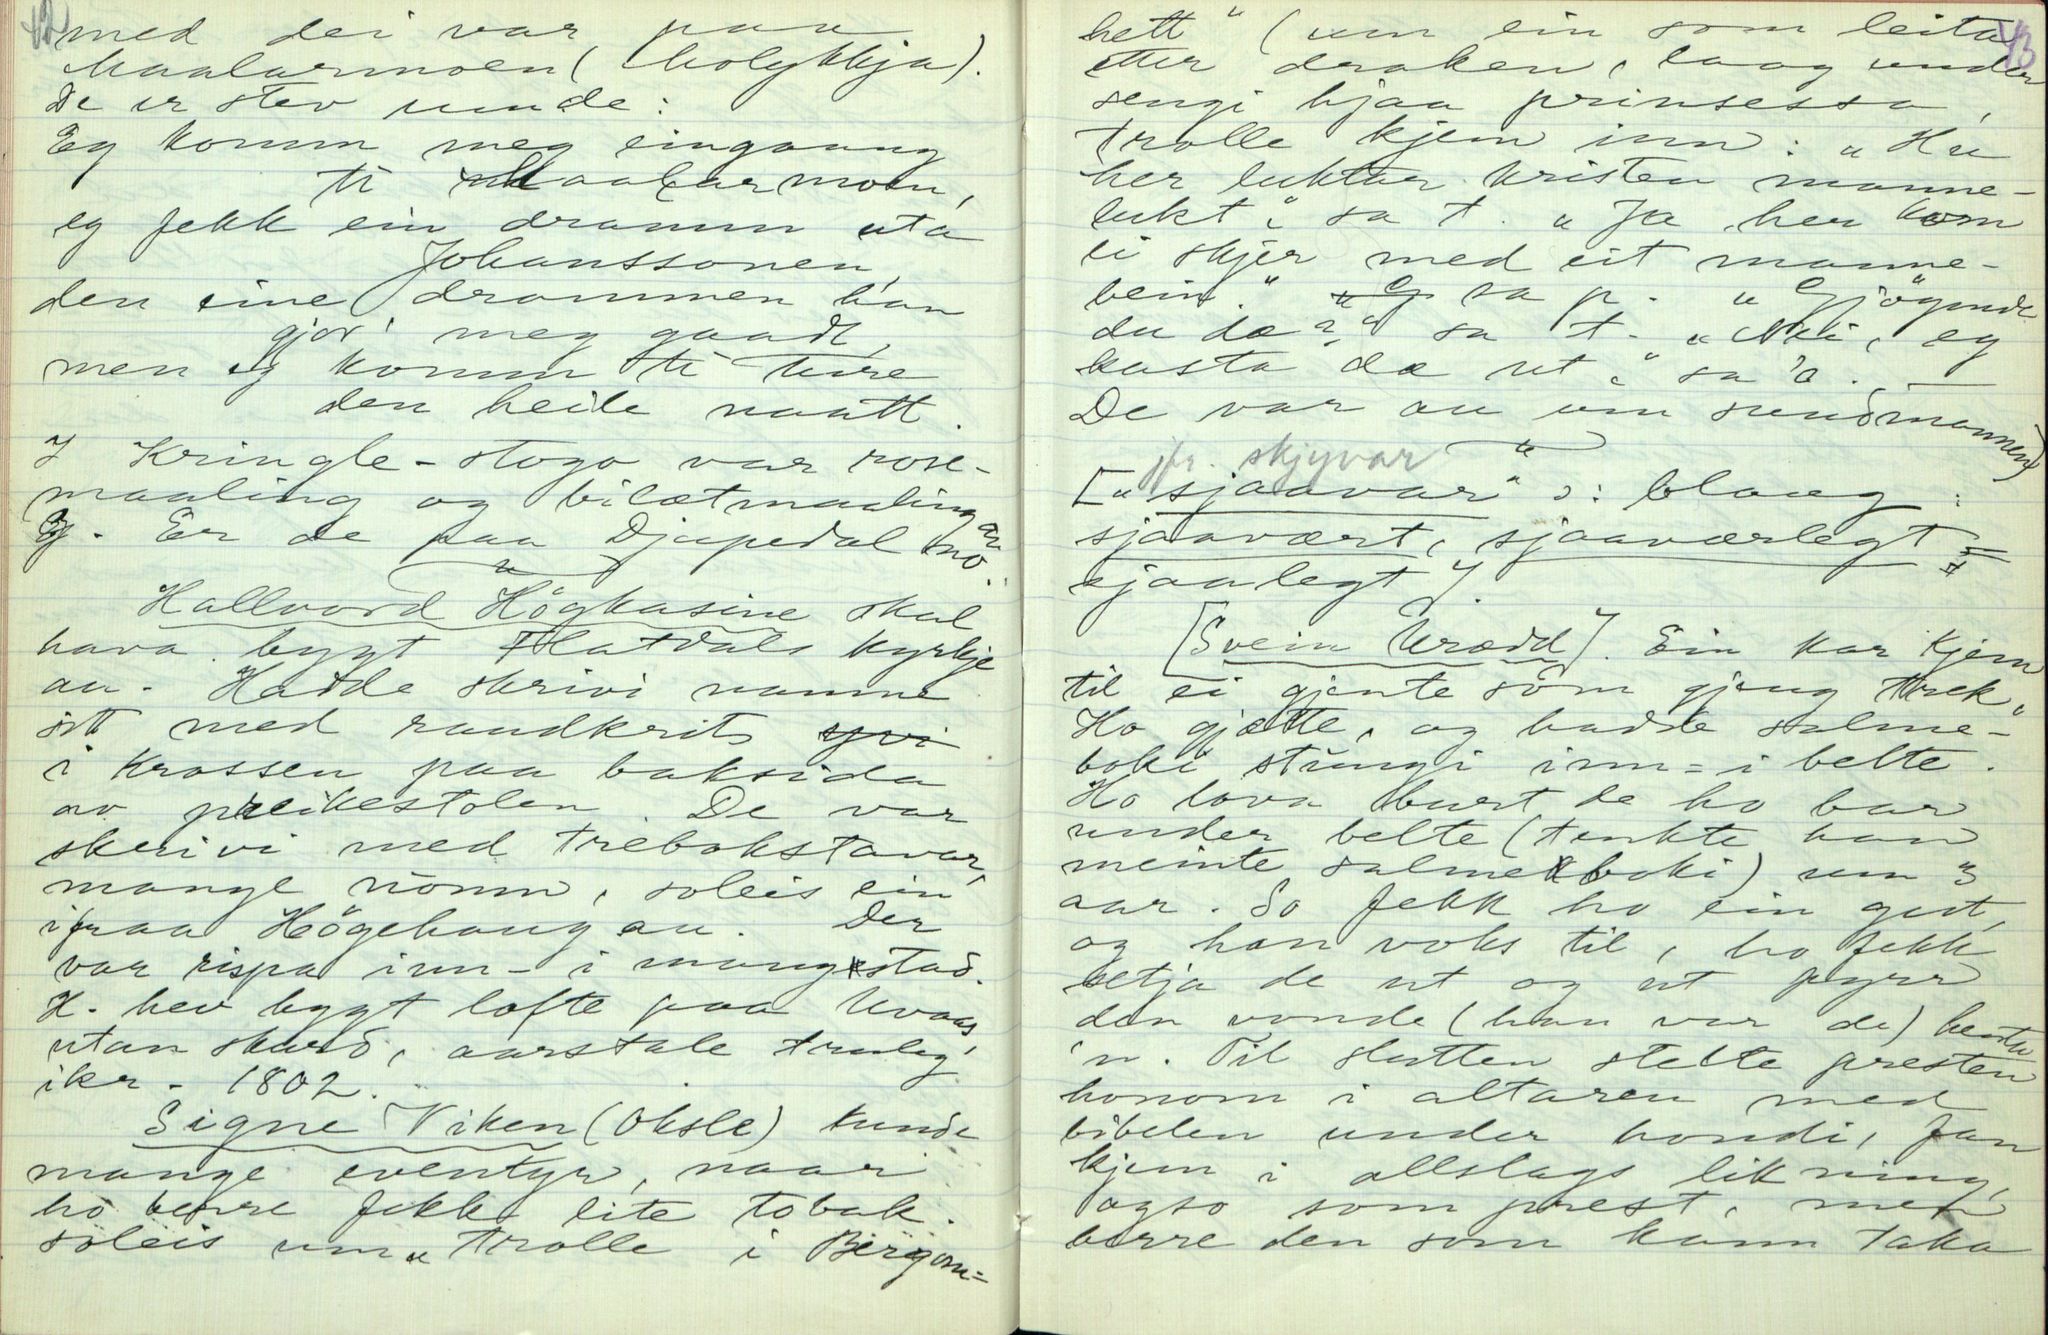 42
med dei var paa
Maalarmoen (Molykkja).
De er stev unde:
Eg komm meg eingaang
ti Maalarmoen,
eg fekk ein dramm uta
Johanssonen,
den eine drammen han
gjor' meg gaadt,
men eg komm ti ture
den heile naatt.
I Kringle-stogo var rose-
maaling og bilætmaaling av
Eg. Er de paa Djupedal no.
Hallvord Högkasine skal
hava bygt Flatdals kyrkje
au. Hadde skrivi namne
sitt med raudkrit
i krossen paa baksida
av preikestolen. De var
skrivi med trebokstavar,
mange nömn, soleis ein
ifraa Högehaug au. Der
var rispa inn-i mange stad.
H. hev bygt lofte paa Uvaas,
utan skurd, aarstale truleg
ikr. 1802.
Signe Viken (Oksle) kunde
mange eventyr, naar
ho berre fekk lite tobak.
soleis um "trolle i Bergom=
43
hett" (um ein som leita
etter draken, laag under
sengi hjaa prinsessa,
trolle kjem inn: "Hu
her luktar kristen manne-
lukt," sa t. "Ja her kom
ei skjer med eit manne-
bein." sa p. "Gjögnde
du dæ?" sa t. "Nei, eg
kasta dæ ut," sa 'a.
De var au um sundmannen)
jfr. skjyvar
["sjaavar" ɔ: blaug:
sjaavært, sjaaværlegt =
sjaalegt].
[Svein Urædd]. Ein kar kjem
til ei gjente som gjeng træk.
Ho gjætte, og hadde salme-
boki stungi inn=i belte.
Ho lova burt de ho bar
under belte (tenkte han
meinte salmeboki) um 3
aar. So fekk ho ein gut,
og han voks til, ho fekk
setja de ut og ut fyrr
den vonde (han var de) hentu
'n. Til slutten stelte presten
honom i altaren med
bibelen under hondi, Fan
kjem i allslags likning,
ogso som prest, men
berre den som kann taka